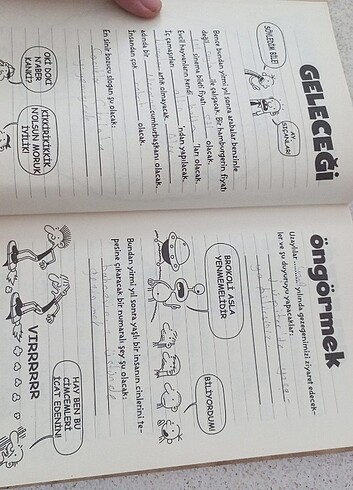 GELECEĞİ
SÖYLEDİN BİLE!
AY
SIÇANLAR!
Bence bundan yirmi yıl sonra arabalar benzinle
değil, ile çalışacak. Bir hamburgerin fiyatı
, sinema bileti fiyatı olacak.
Evcil hayvanların kendi ları olacak.
İç çamaşırları ndan yapılacak.
artık olmayacak.
adında bir cumhurbaşkanı olacak.
İnsandan çok olacak.
En sinir bozucu slogan şu olacak:
OKİ DOKİ
N'ABER
KANKİ?
KİKKİRİKİKKİK
N'OLSUN MORUK
İYİLİK!
öngörmek
Uzaylılar yılında gezegenimizi ziyaret edecek-
ler ve şu duyuruyu yapacaklar:
BROKOLİ ASLA
YENMEMELİDİR
BİLİYORDUM!
Bundan yirmi yıl sonra yaşlı bir insanın cinlerini te-
pesine çıkaracak bir numaralı şey şu olacak:
VIRRRRR
HAY BEN BU
CİMCEMLERİ
İCAT EDENİN!